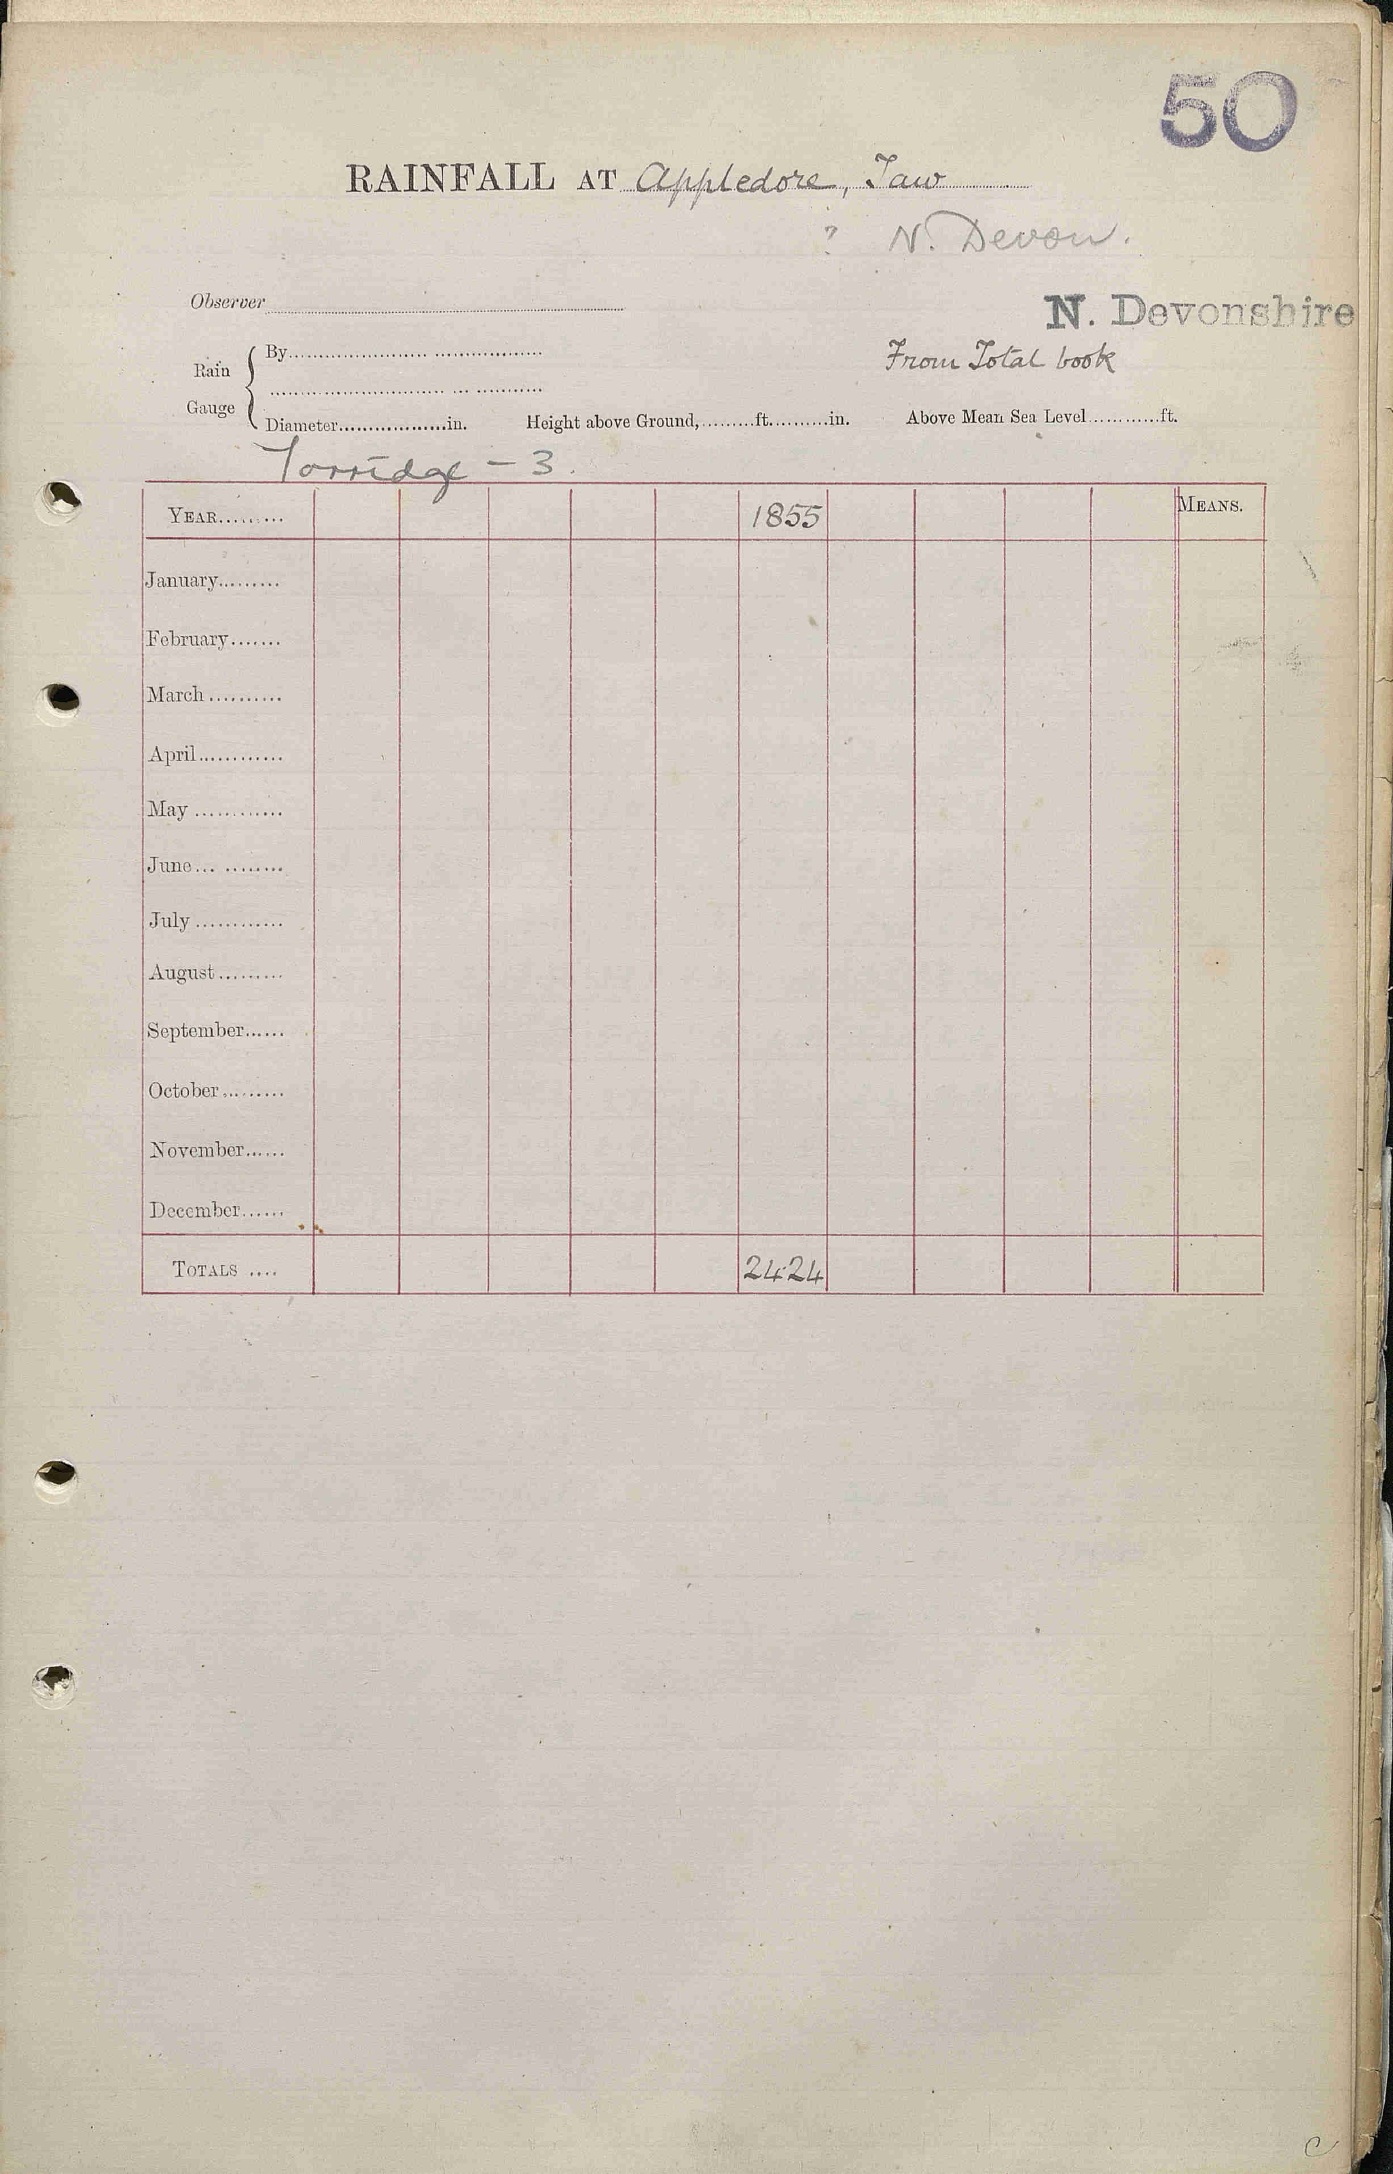 50
RAINFALL AT Appledore, Taw
? N. Devon.
Observer
N. Devonshire
From Total book
Rain Gauge { By
Diameter in. Height above Ground, ft. in. Above Mean Sea Level ft.
Torridge - 3.
YEAR 1855 MEANS.
January
February
March
April
May
June
July
August
September
October
November
December
TOTALS 24.24
c